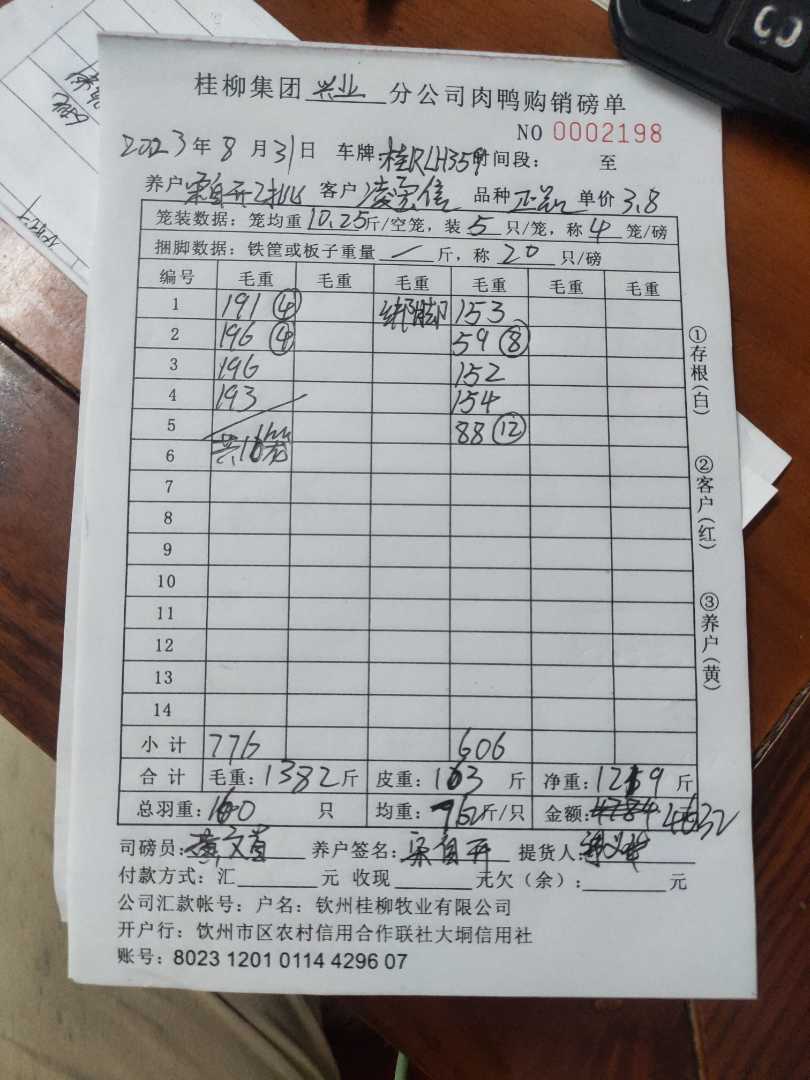 桂柳集团 兴业 分公司肉鸭购销磅单
NO 0002198
2023年8月31日 车牌:桂RLH359 时间段: 至
养户 客户 凌 信 品种 正品 单价 3.8
笼装数据:笼均重10.25斤/空笼,装5只/笼,称4笼/磅
捆脚数据:铁筐或板子重量 / 斤,称20只/磅
编号 毛重 毛重 毛重 毛重 毛重 毛重
1 191④ 绑脚 153
2 196④ 59⑧
3 196 152
4 193 154
5 88⑫
6 共16笼
7
8
9
10
11
12
13
14
小计 776 606
合计 毛重:1382斤 皮重:163斤 净重:1219斤
总羽重:160只 均重:7.62斤/只 金额:4784 4632
司磅员: 养户签名: 提货人:
付款方式:汇 元 收现 元欠(余): 元
公司汇款帐号:户名:钦州桂柳牧业有限公司
开户行:钦州市区农村信用合作联社大垌信用社
账号:8023 1201 0114 4296 07
①存根(白)
②客户(红)
③养户(黄)